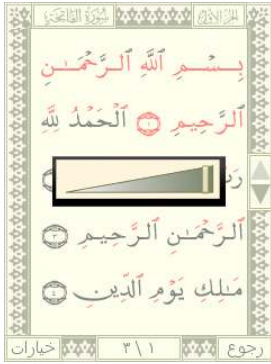 الجزء الأول سورة الفاتحة
بِسْمِ ٱللَّهِ ٱلرَّحْمَـٰنِ
ٱلرَّحِيمِ ١ ٱلْحَمْدُ لِلَّهِ
ٱلرَّحْمَـٰنِ ٱلرَّحِيمِ ٣
مَـٰلِكِ يَوْمِ ٱلدِّينِ ٤
رجوع ١ \ ٣ خيارات